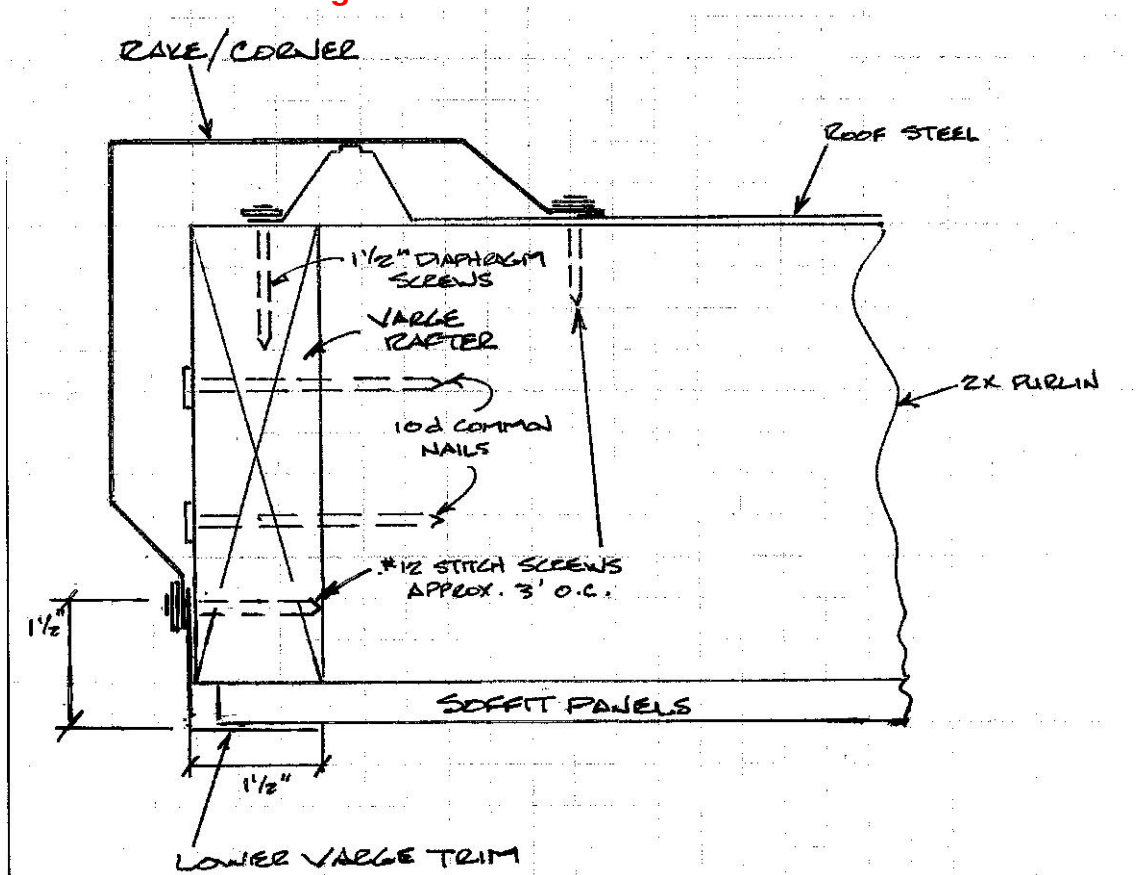 RAKE/CORNER
ROOF STEEL
1 1/2" DIAPHRAGM
SCREWS
VARGE
RAFTER
2X PURLIN
10d COMMON
NAILS
#12 STITCH SCREWS
APPROX. 3' O.C.
1 1/2"
SOFFIT PANELS
1 1/2"
LOWER VARGE TRIM